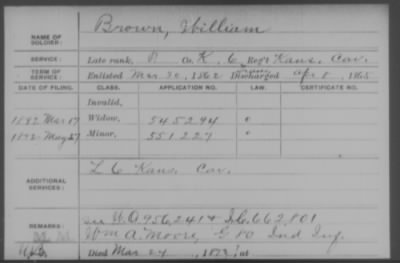 NAME OF SOLDIER: Brown, William
SERVICE: Late rank, P. Co. K, 6 Reg't Kans. Cav.
TERM OF SERVICE: Enlisted Mar 30, 1862 Discharged Apr 8, 1865
DATE OF FILING. CLASS. APPLICATION NO. LAW. CERTIFICATE NO.
Invalid,
1892 Mar 17 Widow, 545294
1892 May 27 Minor, 551227
ADDITIONAL SERVICES: L 6 Kans. Cav.
REMARKS: W.O. 956,241 + I.C. 662,801
Wm A. Moore, G 80 Ind Inf.
Died Mar 24, at